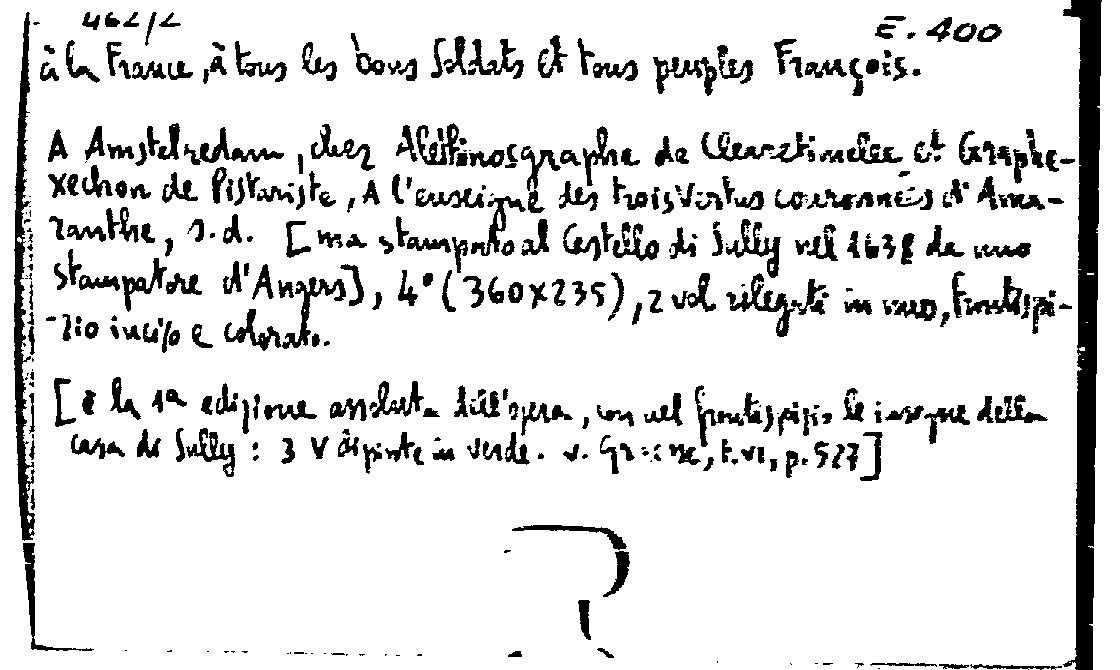 462/2 E.400
à la France, à tous les bons Soldats et tous peuples François.
A Amstelredam, chez Alethinosgraphe de Clearetimelee et Graphe-
xechon de Pistariste, A l'enseigne des trois Vertus couronnées d'Ama-
ranthe, s.d. [ma stampato al Castello di Sully nel 1638 da uno
stampatore d'Angers], 4° (360x235), 2 vol rilegati in uno, frontespi-
-zio inciso e colorato.
[è la 1a edizione assoluta dell'opera, con nel frontespizio le insegne della
casa di Sully : 3 V dipinte in verde. v. , t. VI, p. 527]